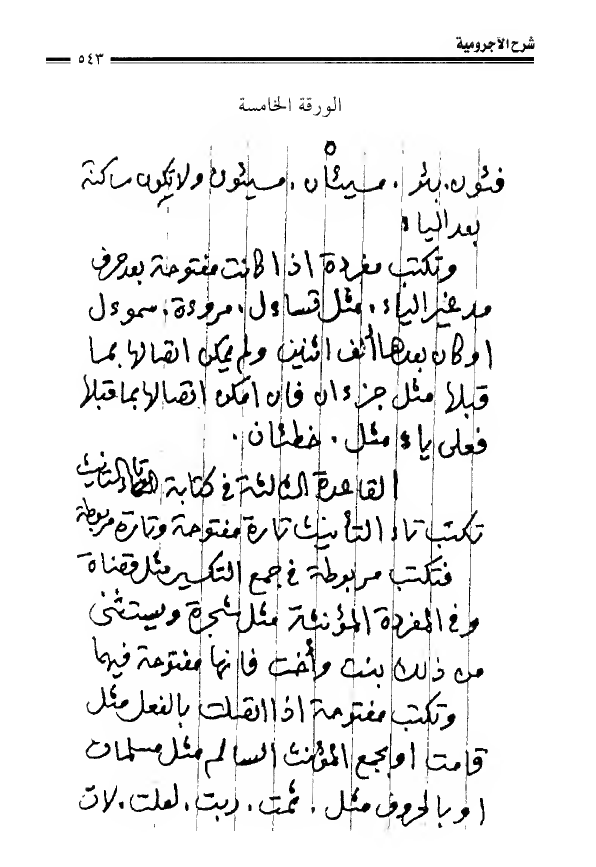 شرح الآجرومية
٥٤٣
الورقة الخامسة
٥
فئون، بئر، مسيئان، مسيئون ولا تكون ساكنة
بعد الياء
وتكتب مفردة اذا كانت مفتوحة بعد حرف
مد غير الياء، مثل تساءل، مروءة، سموءل
او كان بعدها ألف اثنين ولم يمكن اتصالها بما
قبلها مثل جزءان فان امكن اتصالها بما قبلها
فعلى ياء مثل، خطئان.
القاعدة الثالثة في كتابة تاء التأنيث
تكتب تاء التأنيث تارة مفتوحة وتارة مربوطة
فتكتب مربوطة في جمع التكسير مثل قضاة
وفي المفردة المؤنثة مثل شجرة ويستثنى
من ذلك بنت وأخت فانها مفتوحة فيهما
وتكتب مفتوحة اذا اتصلت بالفعل مثل
قامت او بجمع المؤنث السالم مثل مسلمات
او بالحروف مثل، ثمت، ربت، لعلت، لات